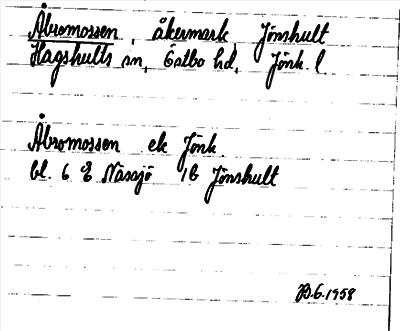 Åbromossen, åkermark, Jönshult
Hagshults sn, Östbo hd, Jönk. l
Åbromossen ek Jönk.
bl. 6 E Nässjö 1b Jönshult
6.1958